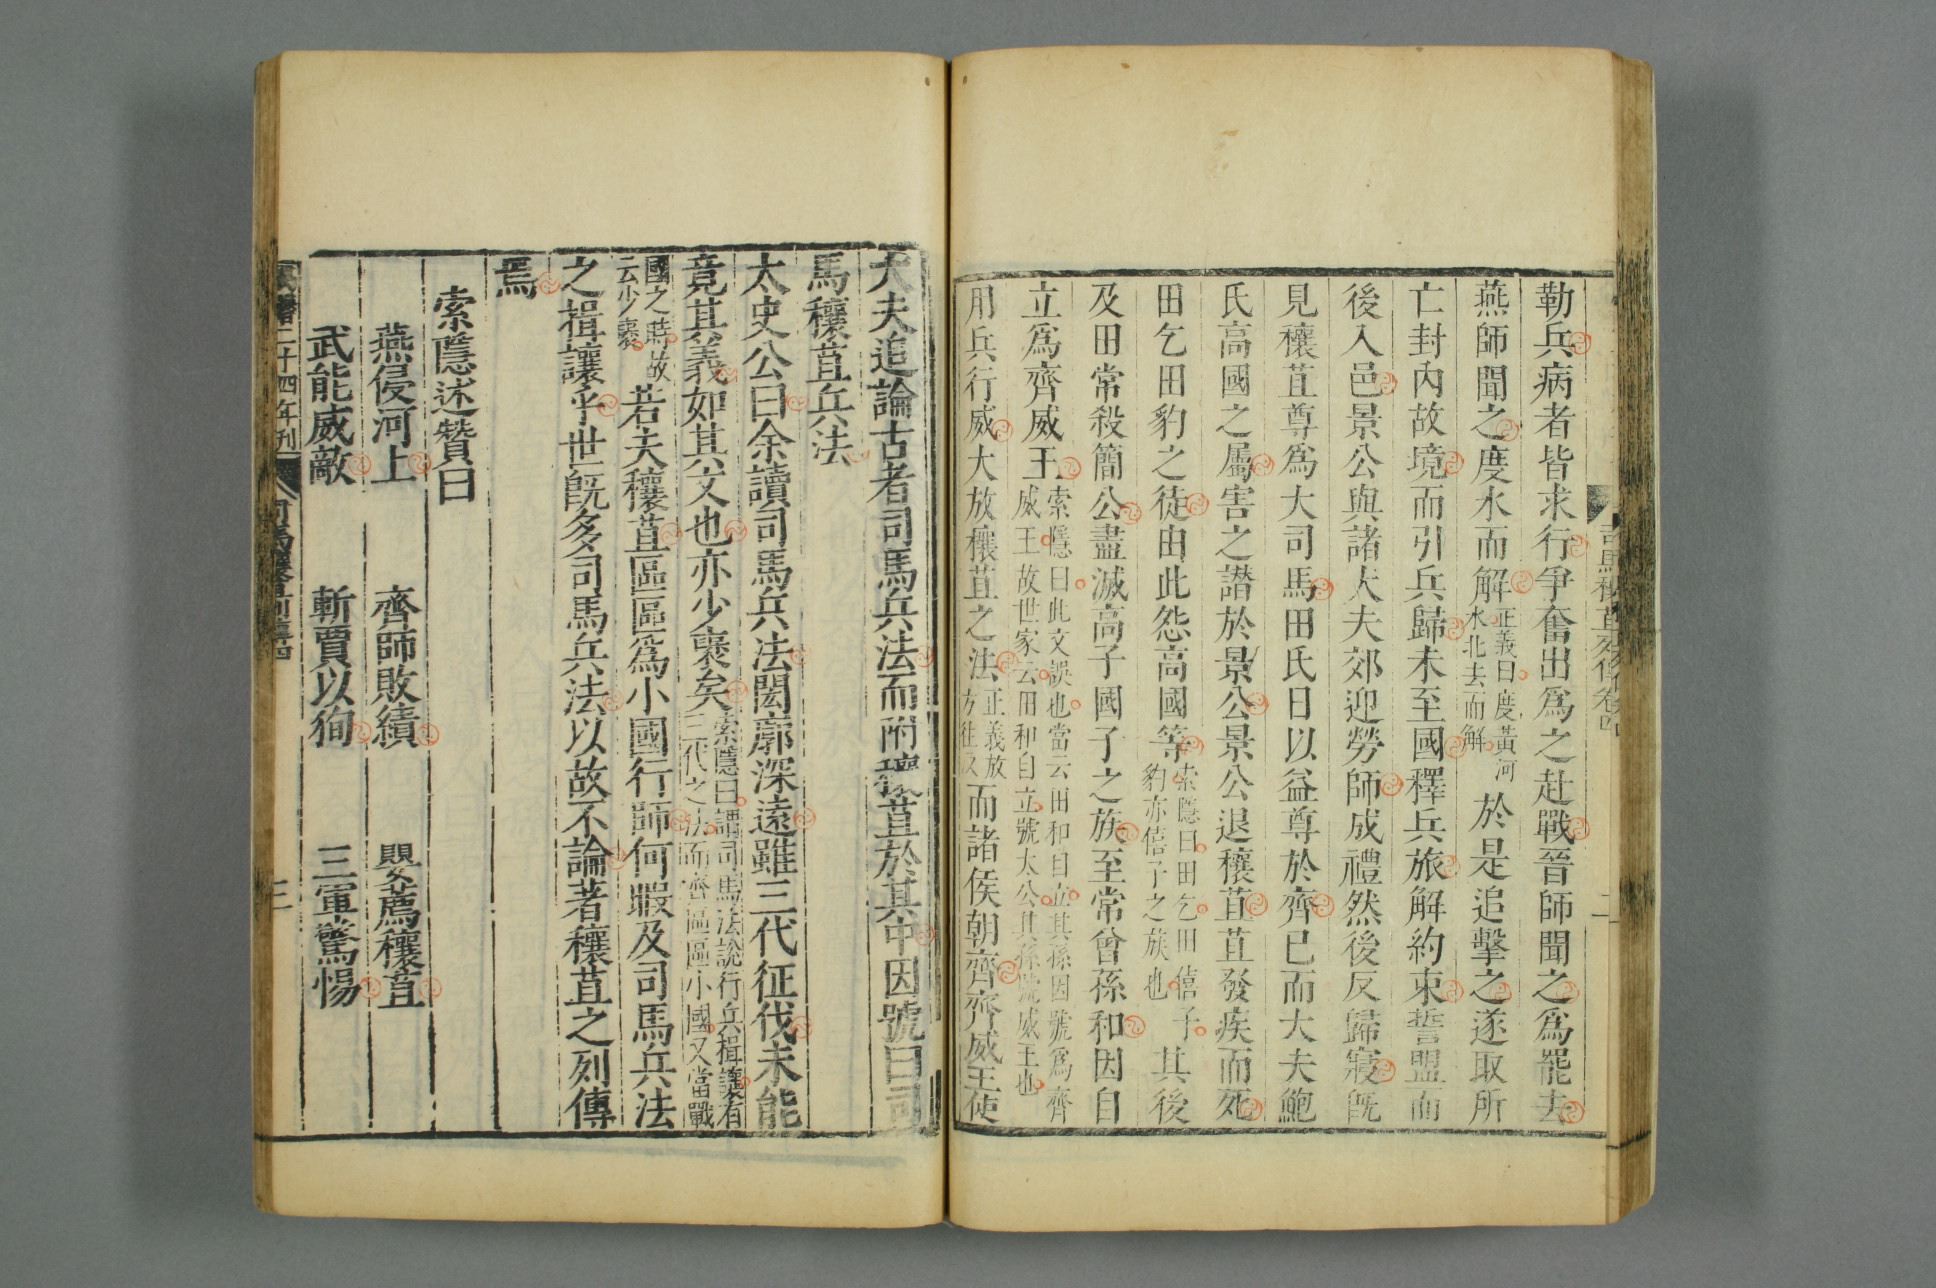 勒兵病者皆求行爭奮出爲之赴戰晉師聞之爲罷去
燕師聞之度水而解正義曰度黃河水北去而解於是追擊之遂取所
亡封內故境而引兵歸未至國釋兵旅解約束誓盟而
後入邑景公與諸大夫郊迎勞師成禮然後反歸寢旣
見穰苴尊爲大司馬田氏日以益尊於齊已而大夫鮑
氏高國之屬害之譖於景公景公退穰苴苴發疾而死
田乞田豹之徒由此怨高國等索隱曰田乞田僖子豹亦僖子之族也其後
及田常殺簡公盡滅高子國子之族至常曾孫和因自
立爲齊威王索隱曰此文誤也當云田和自立其孫因號爲齊威王故世家云田和自立號太公其孫號威王也
用兵行威大放穰苴之法正義放方往又而諸侯朝齊齊威王使
大夫追論古者司馬兵法而附穰苴於其中因號曰司
馬穰苴兵法
太史公曰余讀司馬兵法閎廓深遠雖三代征伐未能
竟其義如其文也亦少襃矣索隱曰謂司馬法說行兵揖讓有三代之法而齊區區小國又當戰
國之時故云少襃若夫穰苴區區爲小國行師何暇及司馬兵法
之揖讓乎世旣多司馬兵法以故不論著穰苴之列傳
焉
索隱述贊曰
燕侵河上 齊師敗績 嬰薦穰苴
武能威敵 斬賈以徇 三軍驚惕
二十四年刊
三